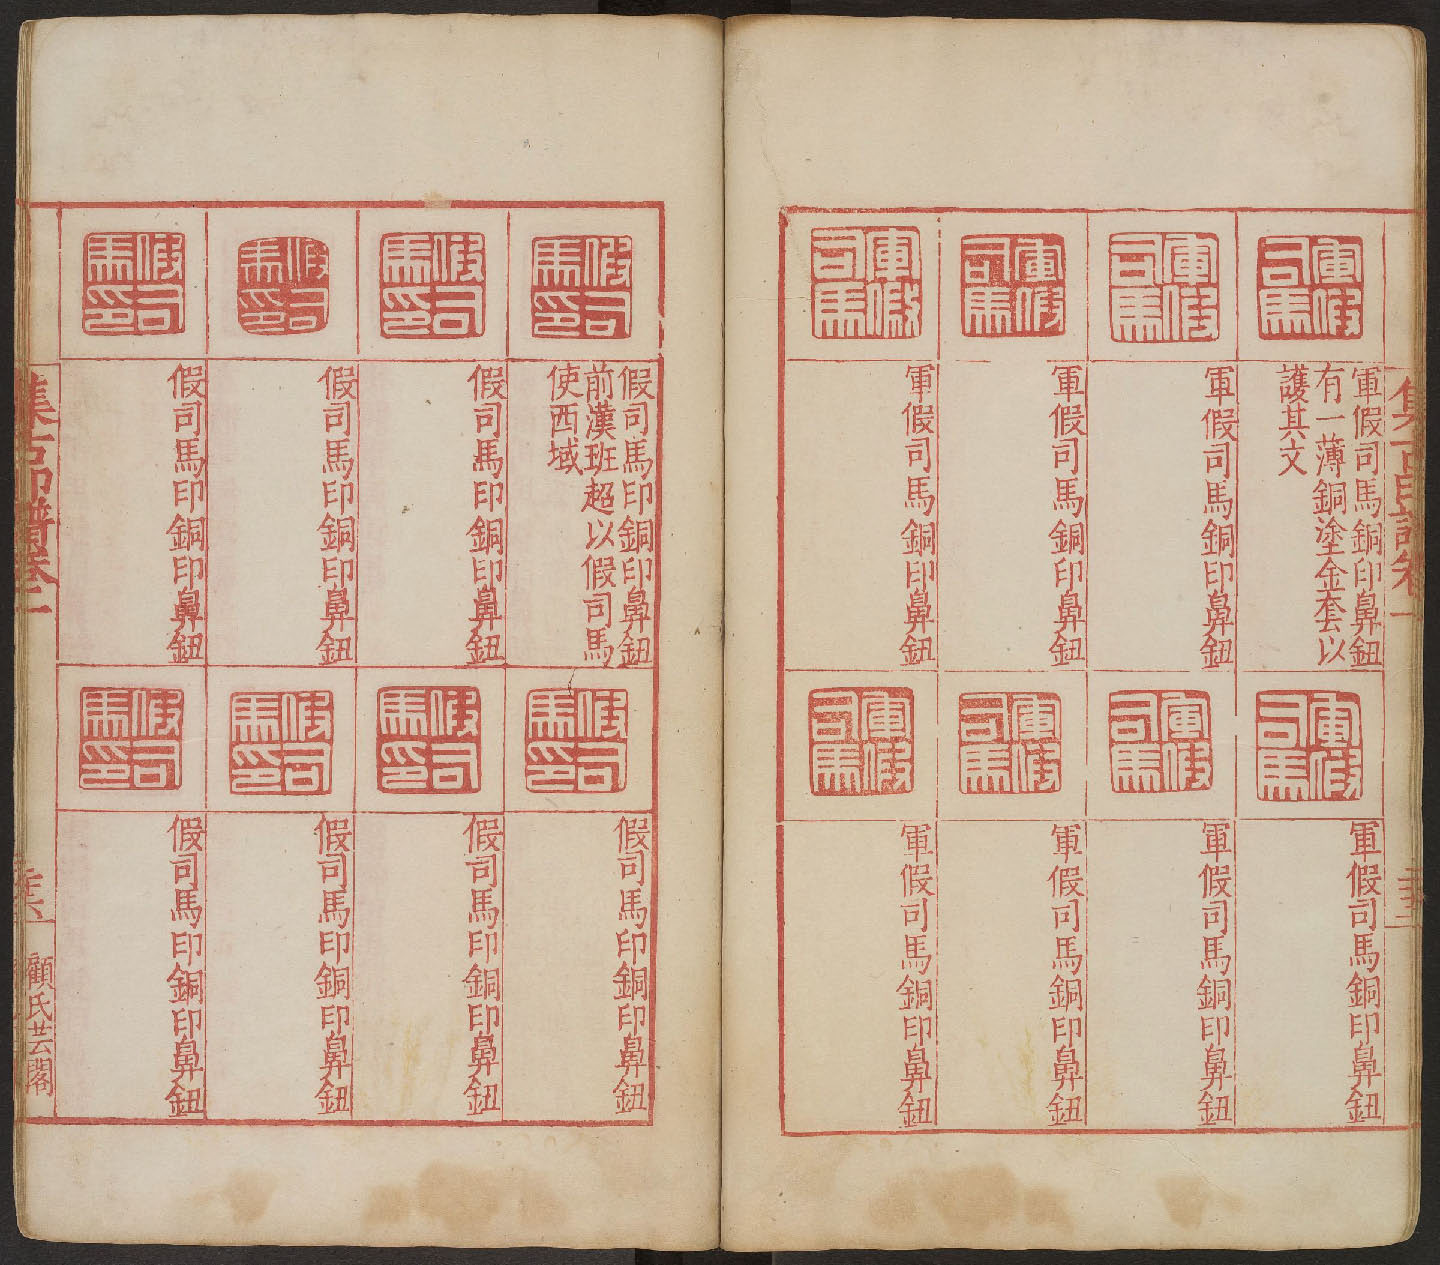 軍假司馬
軍假司馬銅印鼻鈕
有一薄銅塗金套以
護其文
軍假司馬
軍假司馬銅印鼻鈕
軍假司馬
軍假司馬銅印鼻鈕
軍假司馬
軍假司馬銅印鼻鈕
軍假司馬
軍假司馬銅印鼻鈕
軍假司馬
軍假司馬銅印鼻鈕
軍假司馬
軍假司馬銅印鼻鈕
軍假司馬
軍假司馬銅印鼻鈕
假司馬印
假司馬印銅印鼻鈕
前漢班超以假司馬
使西域
假司馬印
假司馬印銅印鼻鈕
假司馬印
假司馬印銅印鼻鈕
假司馬印
假司馬印銅印鼻鈕
假司馬印
假司馬印銅印鼻鈕
假司馬印
假司馬印銅印鼻鈕
假司馬印
假司馬印銅印鼻鈕
假司馬印
假司馬印銅印鼻鈕
集古印譜卷二
顧氏芸閣